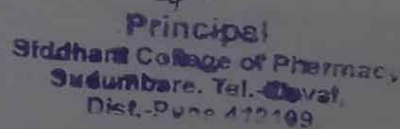 Principal
Siddhant College of Pharmacy,
Sudumbare, Tel.-Maval,
Dist.-Pune 412109